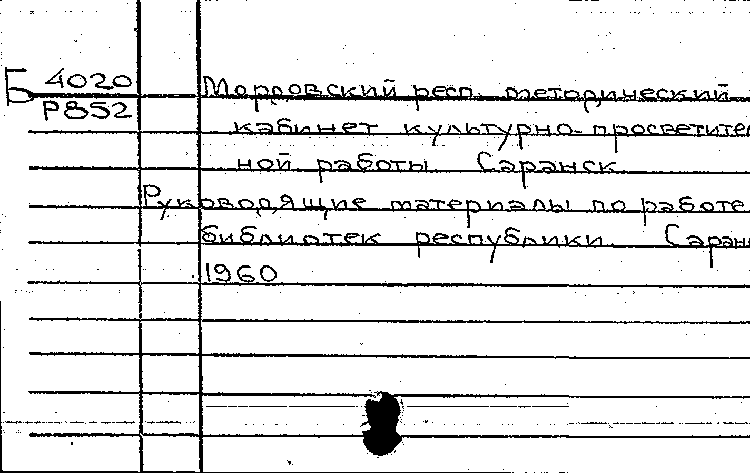 Б 4020
Р852
Мордовский респ. методический
кабинет культурно-просветител
ной работы Саранск
Руководящие материалы по работе
библиотек республики Саранс
1960